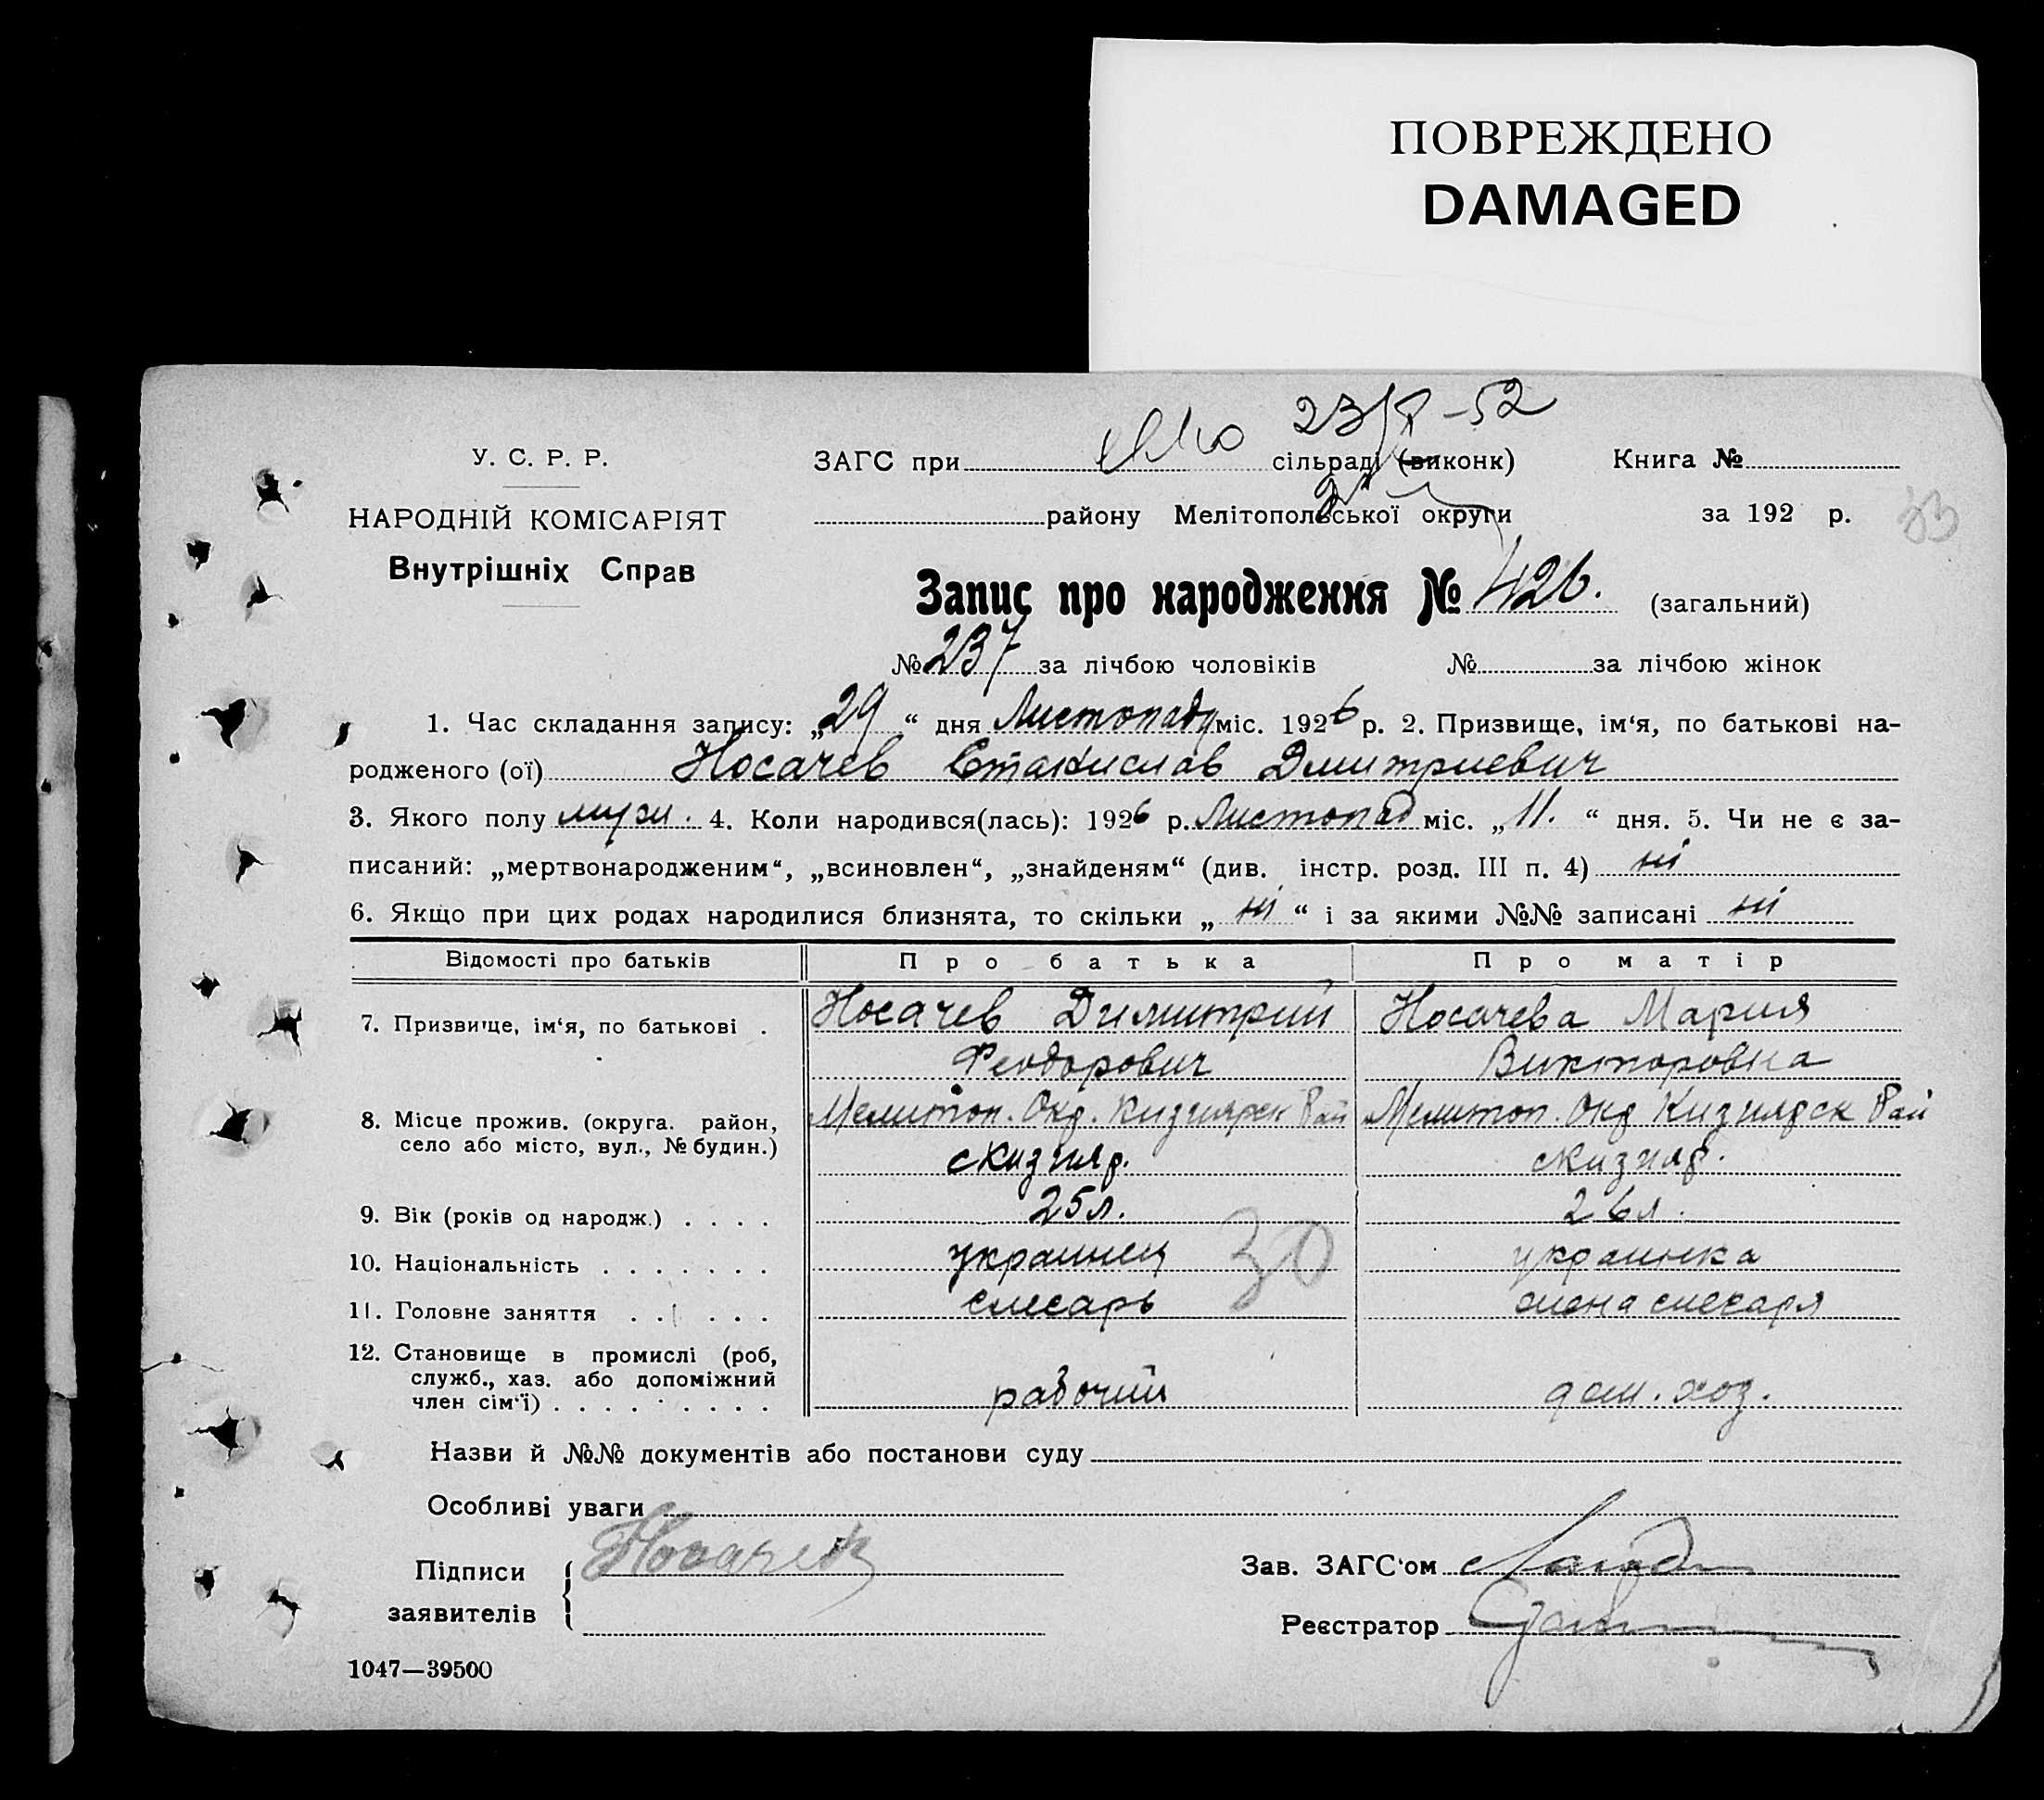 ПОВРЕЖДЕНО
DAMAGED
23/X-52
У. С. Р. Р.
ЗАГС при сільраді (виконк) Книга №
НАРОДНІЙ КОМІСАРІЯТ
району Мелітопольської округи за 192 р. 33
Внутрішніх Справ
Запис про народження № 426. (загальний)
№ 237 за лічбою чоловіків № за лічбою жінок
1. Час складання запису: „29“ дня Листопаду міс. 1926 р. 2. Призвище, ім‘я, по батькові на-
родженого (ої) Носачев Станислав Дмитриевич
3. Якого полу муж. 4. Коли народився(лась): 1926 р. Листопад міс. „11.“ дня. 5. Чи не є за-
писаний: „мертвонародженим“, „всиновлен“, „знайденям“ (див. інстр. розд. III п. 4) ні
6. Якщо при цих родах народилися близнята, то скільки „ні“ і за якими №№ записані ні
Відомості про батьків Про батька Про матір
7. Призвище, ім‘я, по батькові . Носачев Димитрий Носачева Мария
Феодорович Викторовна
8. Місце прожив. (округа. район, Мелитоп. Окр. Кизиярск Рай Мелитоп. Окр Кизиярск Рай
село або місто, вул., № будин.) с Кизияр. с Кизияр.
9. Вік (років од народж.) . . . . 25 л. 26 л.
10. Національність . . . . . . . украинец 30 украинка
11. Головне заняття . . . . . слесарь жена слесаря
12. Становище в промислі (роб,
служб., хаз. або допоміжний
член сім‘ї) . . . . . . . . . рабочий дом. хоз.
Назви й №№ документів або постанови суду
Особливі уваги
Підписи Носачев Зав. ЗАГС‘ом
заявителів Реєстратор
1047—39500